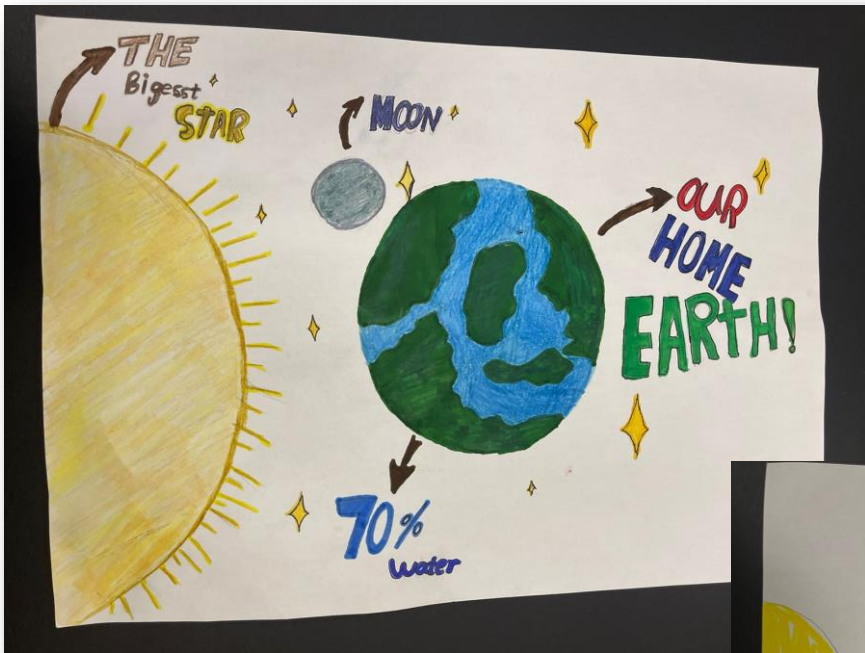 THE
Bigesst
STAR
MOON
OUR
HOME
EARTH!
70%
water